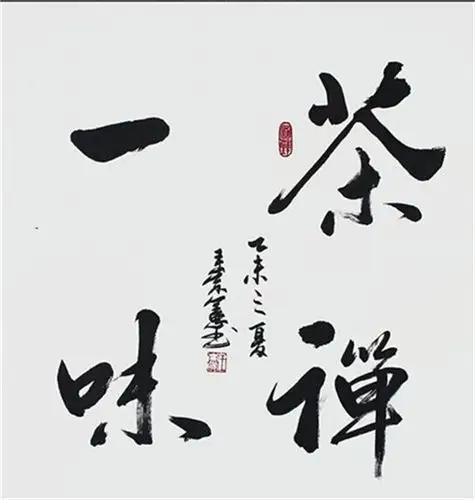 茶禪
一味
乙未之夏